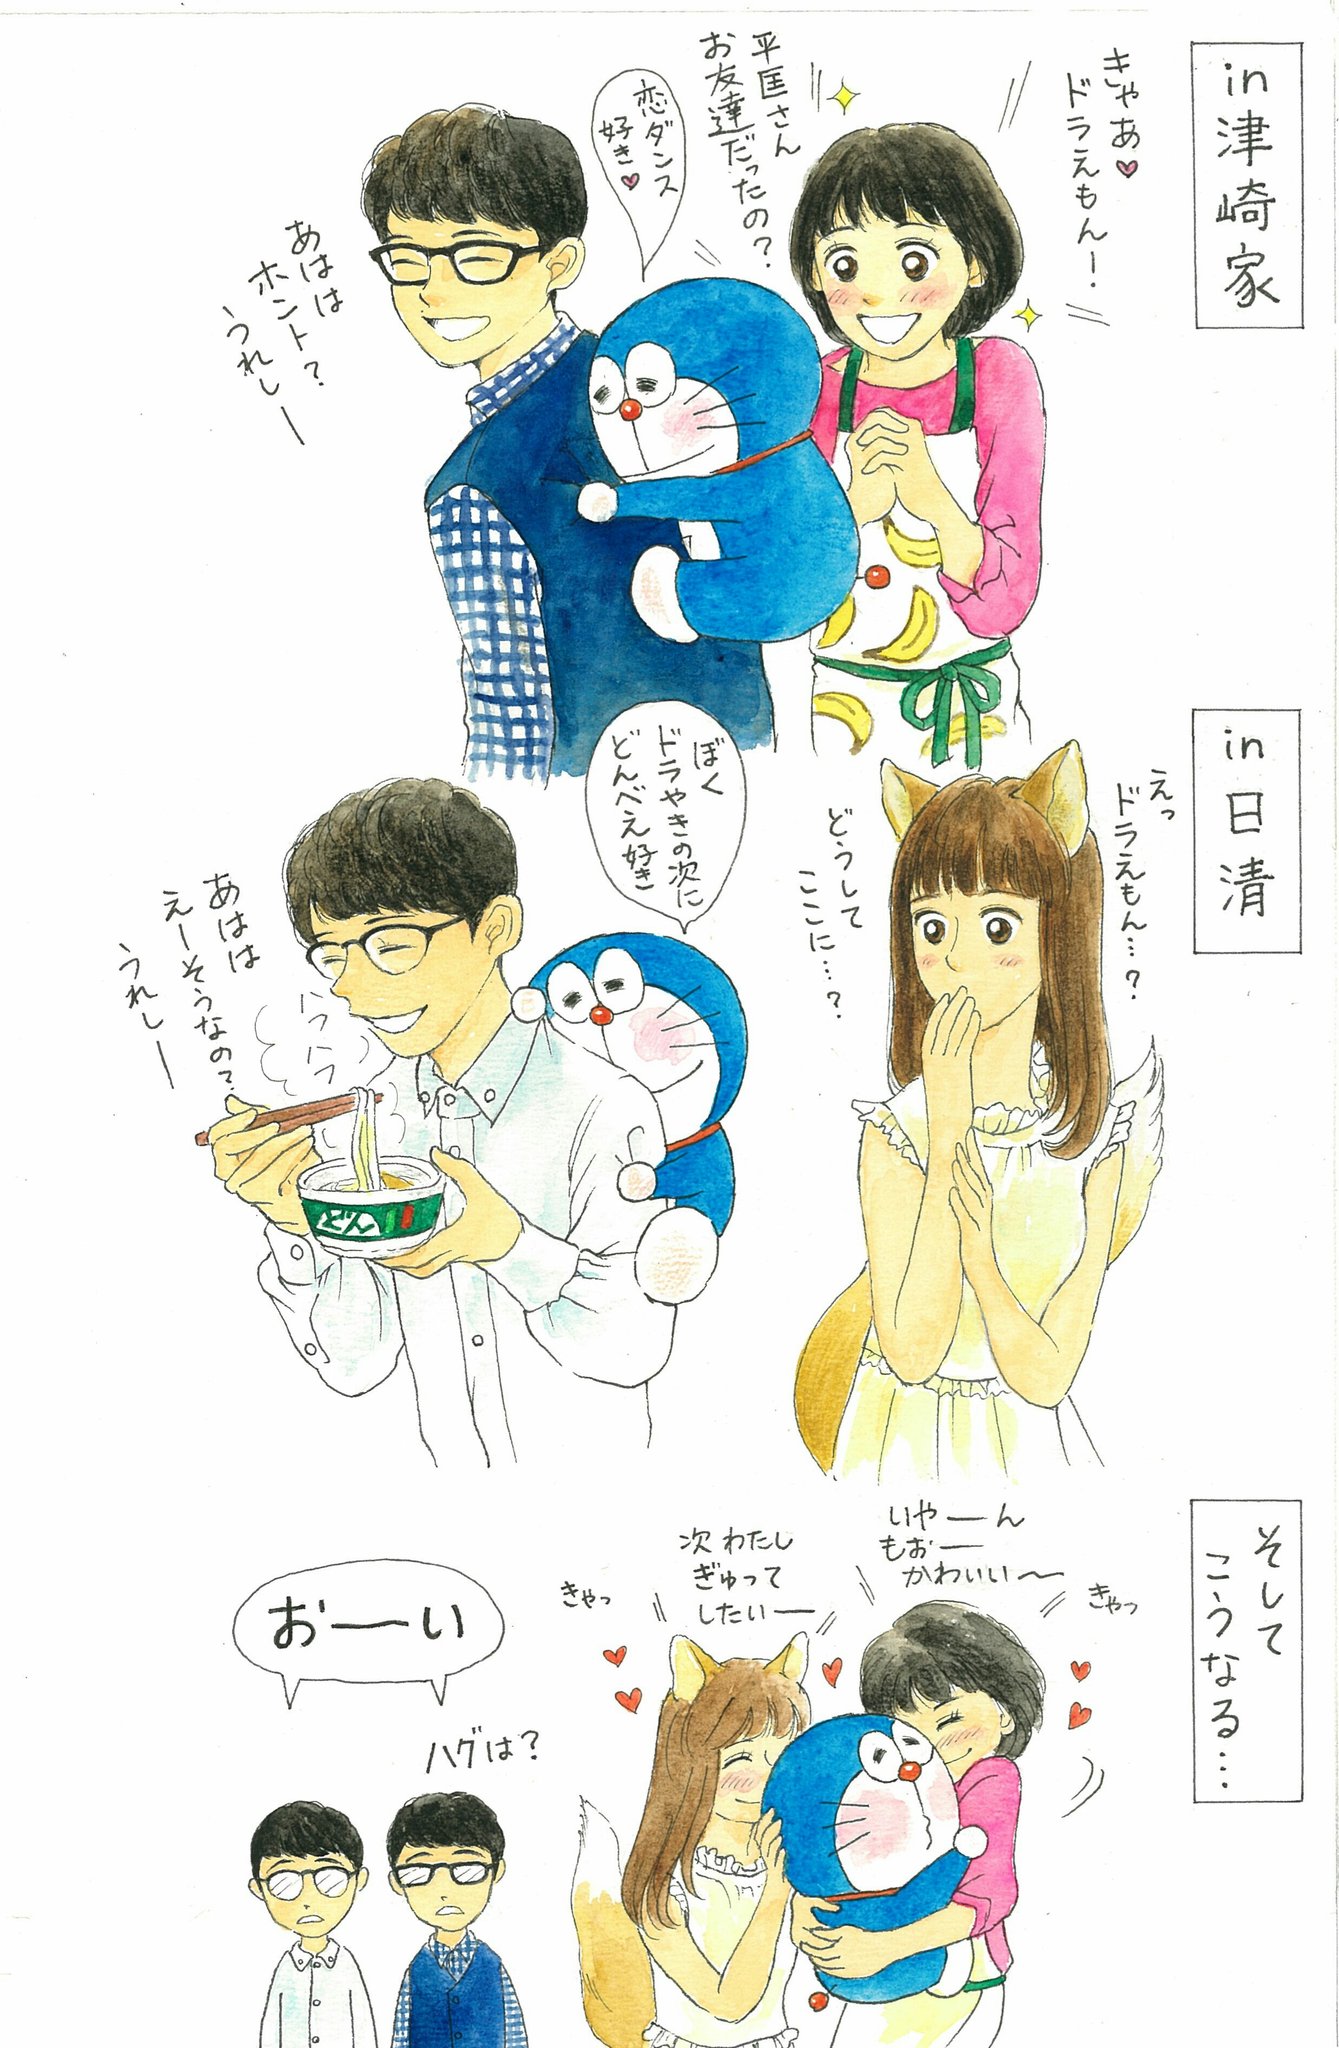 in津崎家
きゃあ♥
ドラえもん！
平匡さん
お友達だったの？
恋ダンス
好き♥
あはは
ホント？
うれしー
in日清
えっ
ドラえもん…？
どうして
ここに…？
ぼく
ドラやきの次に
どんべえ好き
あはは
えーそうなの？
うれしー
ハフハフ
どん
そして
こうなる…
いやーん
もおー
かわいい〜
きゃっ
次わたし
ぎゅって
したいー
きゃっ
おーい
ハグは？